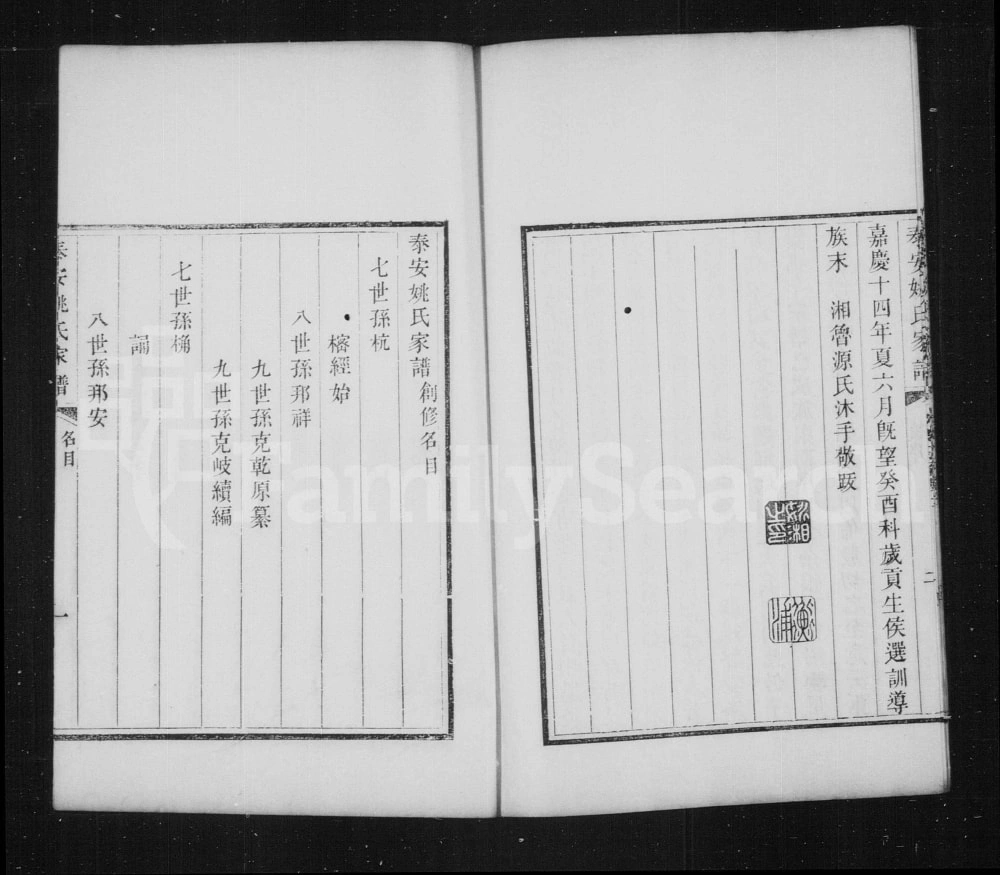 嘉慶十四年夏六月既望癸酉科歲貢生候選訓導
族末 湘魯源氏沐手敬跋
姚湘之印
衡浦
二
泰安姚氏家譜創修名目
七世孫杭
榕經始
八世孫邦祥
九世孫克乾原纂
九世孫克岐續編
七世孫桷
八世孫邦安
泰安姚氏家譜
名目
一
FamilySearch